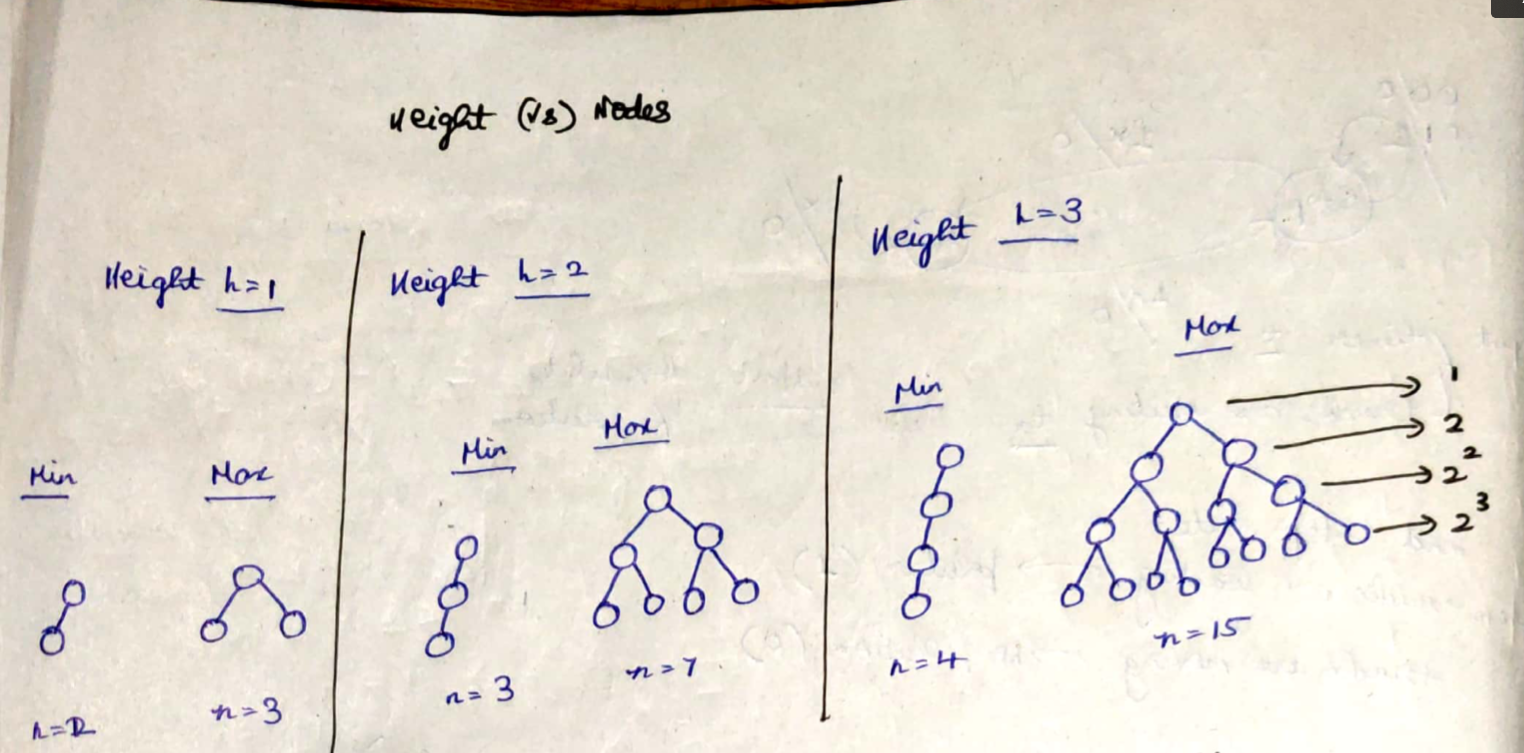 Height (Vs) Nodes
Height h=1
Min
Max
n=2
n=3
Height h=2
Min
Max
n=3
n=7
Height h=3
Min
Max
1
2
2²
2³
n=4
n=15